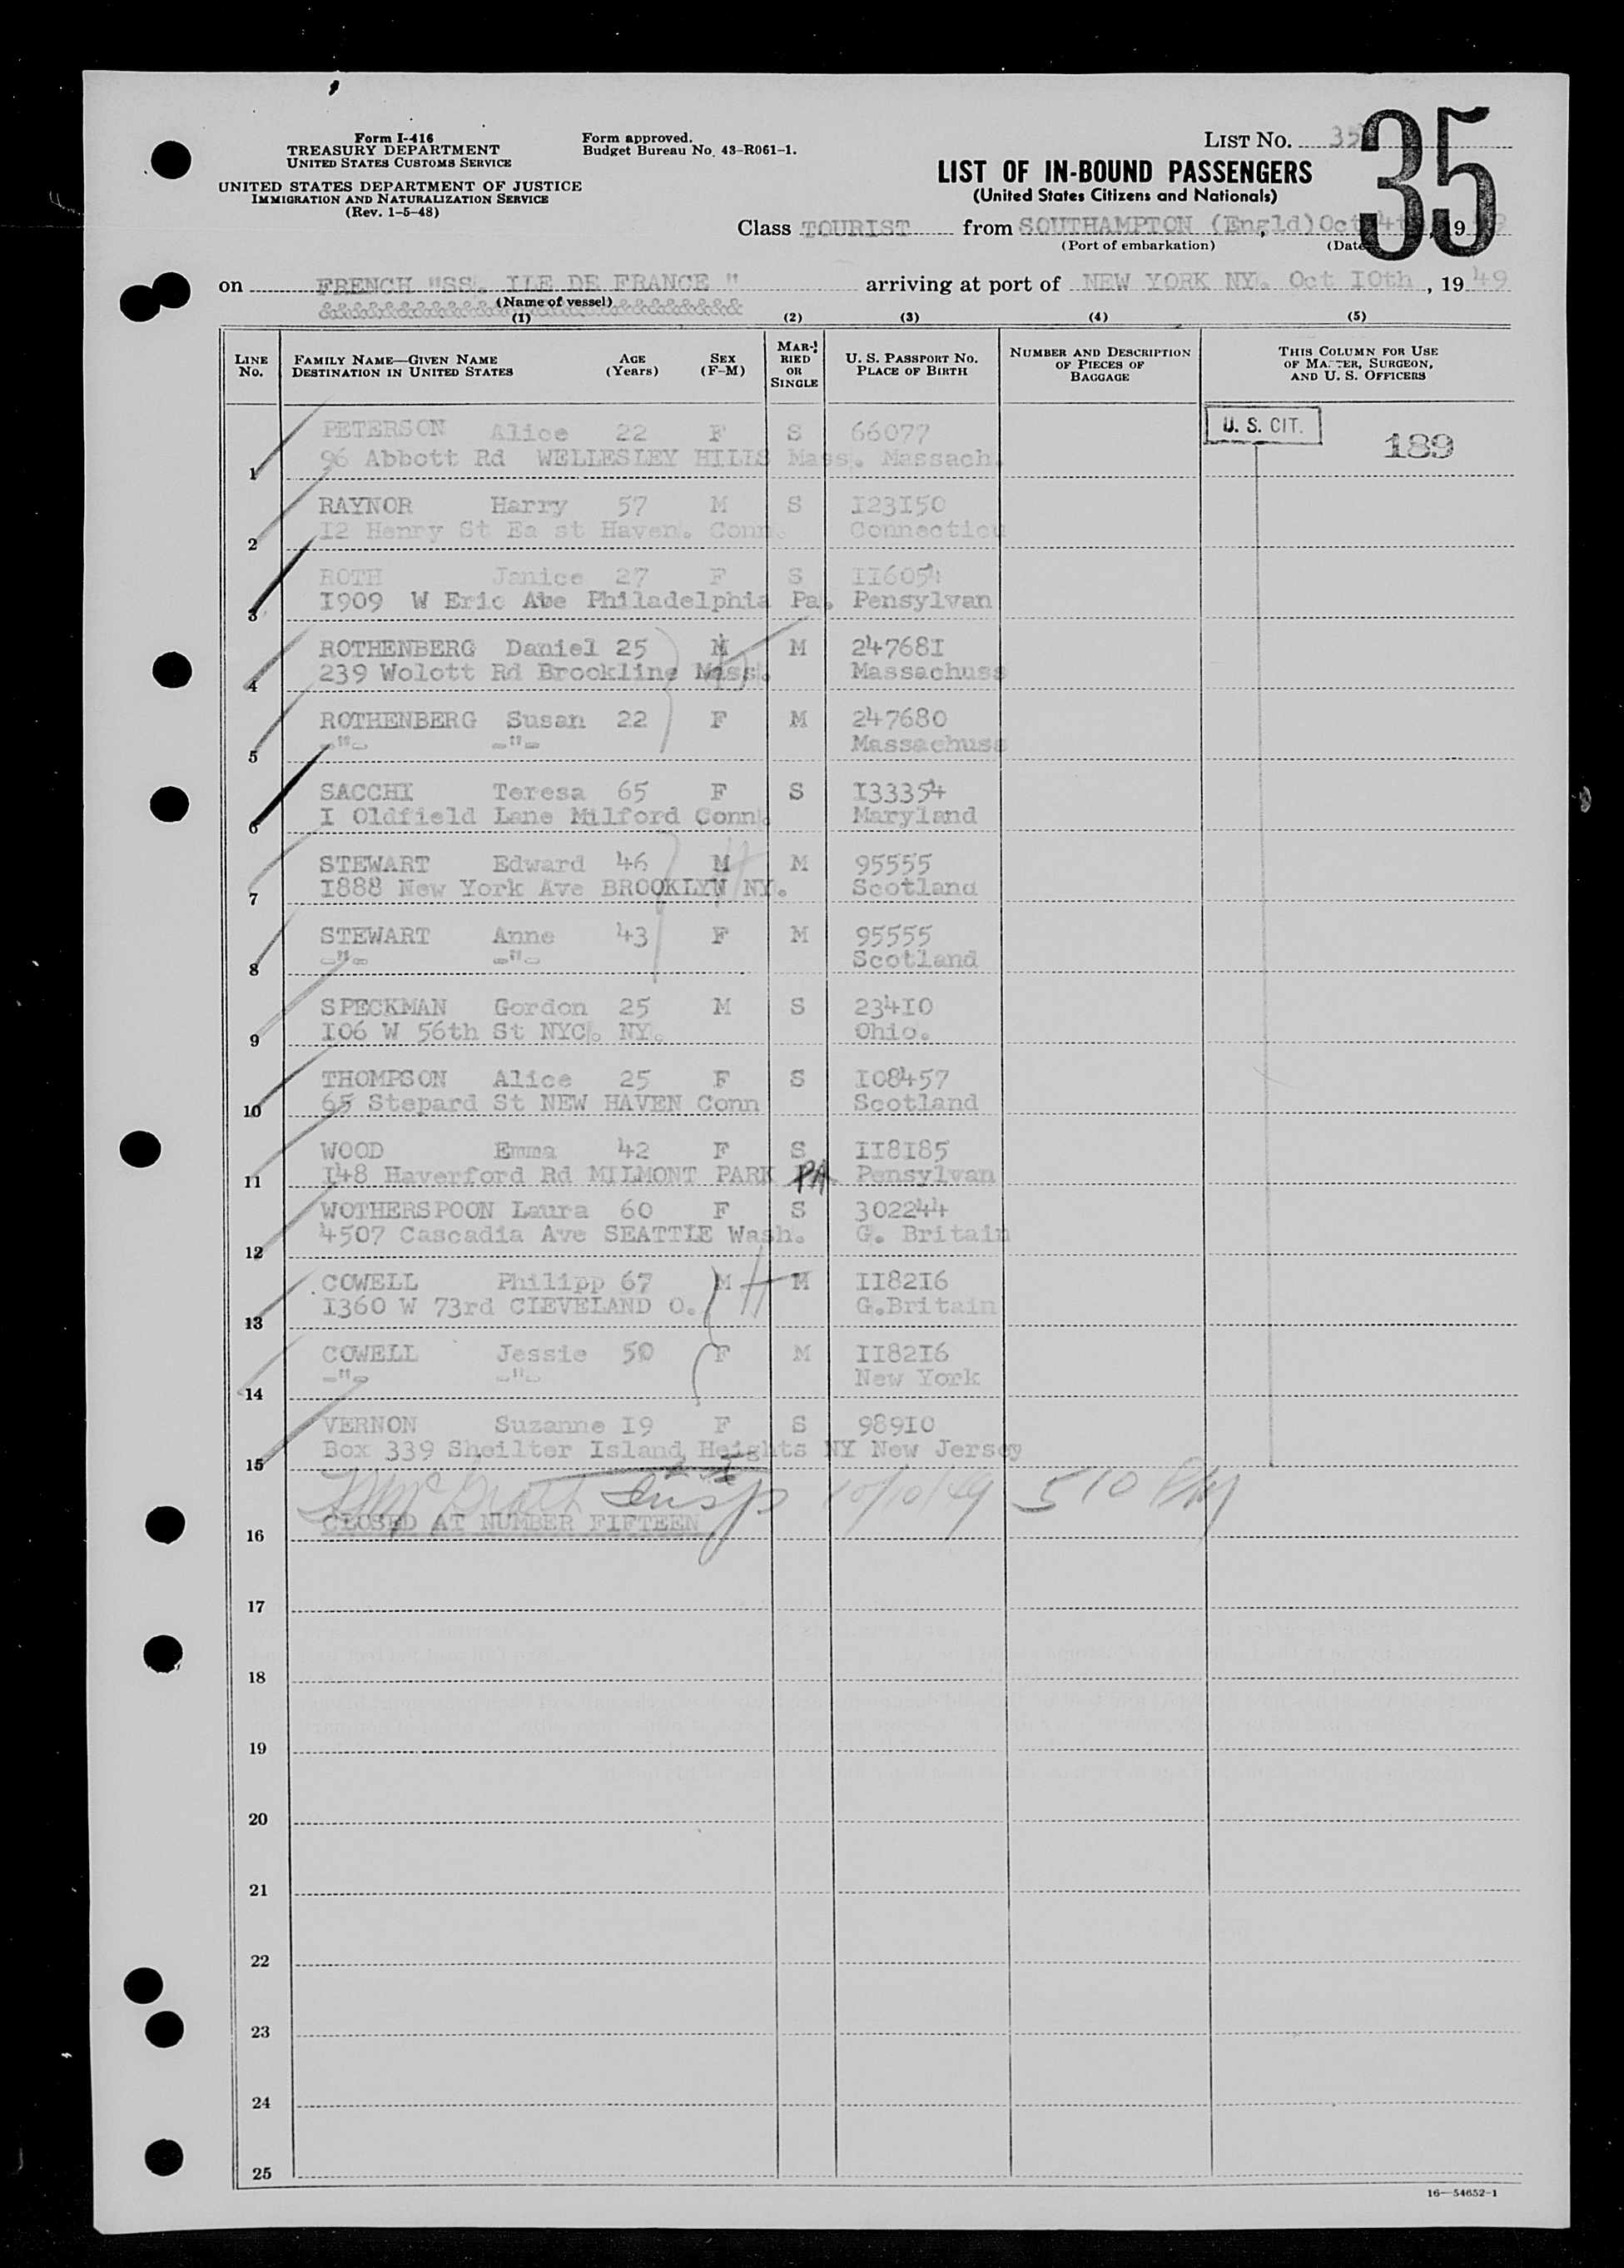 Form I-416
TREASURY DEPARTMENT
UNITED STATES CUSTOMS SERVICE
UNITED STATES DEPARTMENT OF JUSTICE
IMMIGRATION AND NATURALIZATION SERVICE
(Rev. 1-5-48)
Form approved.
Budget Bureau No. 43-R061-1.
LIST NO. 35
35
LIST OF IN-BOUND PASSENGERS
(United States Citizens and Nationals)
Class TOURIST from SOUTHAMPTON (Engld) Oct 4th, 1949
(Port of embarkation) (Date)
on FRENCH "SS. ILE DE FRANCE " arriving at port of NEW YORK NY. Oct I0th, 1949
(Name of vessel)
(1) (2) (3) (4) (5)
LINE NO. FAMILY NAME—GIVEN NAME AGE SEX MARRIED OR SINGLE U. S. PASSPORT NO. NUMBER AND DESCRIPTION OF PIECES OF BAGGAGE THIS COLUMN FOR USE OF MASTER, SURGEON, AND U. S. OFFICERS
DESTINATION IN UNITED STATES (Years) (F-M) PLACE OF BIRTH
PETERSON Alice 22 F S 66077 U. S. CIT. 189
1 96 Abbott Rd WELLESLEY HILLS Mass. Massach.
RAYNOR Harry 57 M S I23I50
2 I2 Henry St Ea st Haven. Conn. Connecticu
ROTH Janice 27 F S II6054
3 I909 W Eric Abe Philadelphia Pa. Pensylvan
ROTHENBERG Daniel 25 M M 24768I
4 239 Wolott Rd Brookline Mass. Massachuss
ROTHENBERG Susan 22 F M 247680
5 -"- -"- Massachuss
SACCHI Teresa 65 F S I33354
6 I Oldfield Lane Milford Conn. Maryland
STEWART Edward 46 M M 95555
7 I888 New York Ave BROOKLYN NY. Scotland
STEWART Anne 43 F M 95555
8 -"- -"- Scotland
SPECKMAN Gordon 25 M S 234I0
9 I06 W 56th St NYC. NY. Ohio.
THOMPSON Alice 25 F S I08457
10 65 Stepard St NEW HAVEN Conn Scotland
WOOD Emma 42 F S II8I85
11 I48 Haverford Rd MILMONT PARK PA Pensylvan
WOTHERSPOON Laura 60 F S 302244
12 4507 Cascadia Ave SEATTLE Wash. G. Britain
COWELL Philipp 67 M M II82I6
13 I360 W 73rd CLEVELAND O. G.Britain
COWELL Jessie 50 F M II82I6
14 -"- -"- New York
VERNON Suzanne I9 F S 989I0
15 Box 339 Sheilter Island Heights NY New Jersey
Insp 10/10/49 510 PM
16 CLOSED AT NUMBER FIFTEEN
17
18
19
20
21
22
23
24
25
16—54652-1